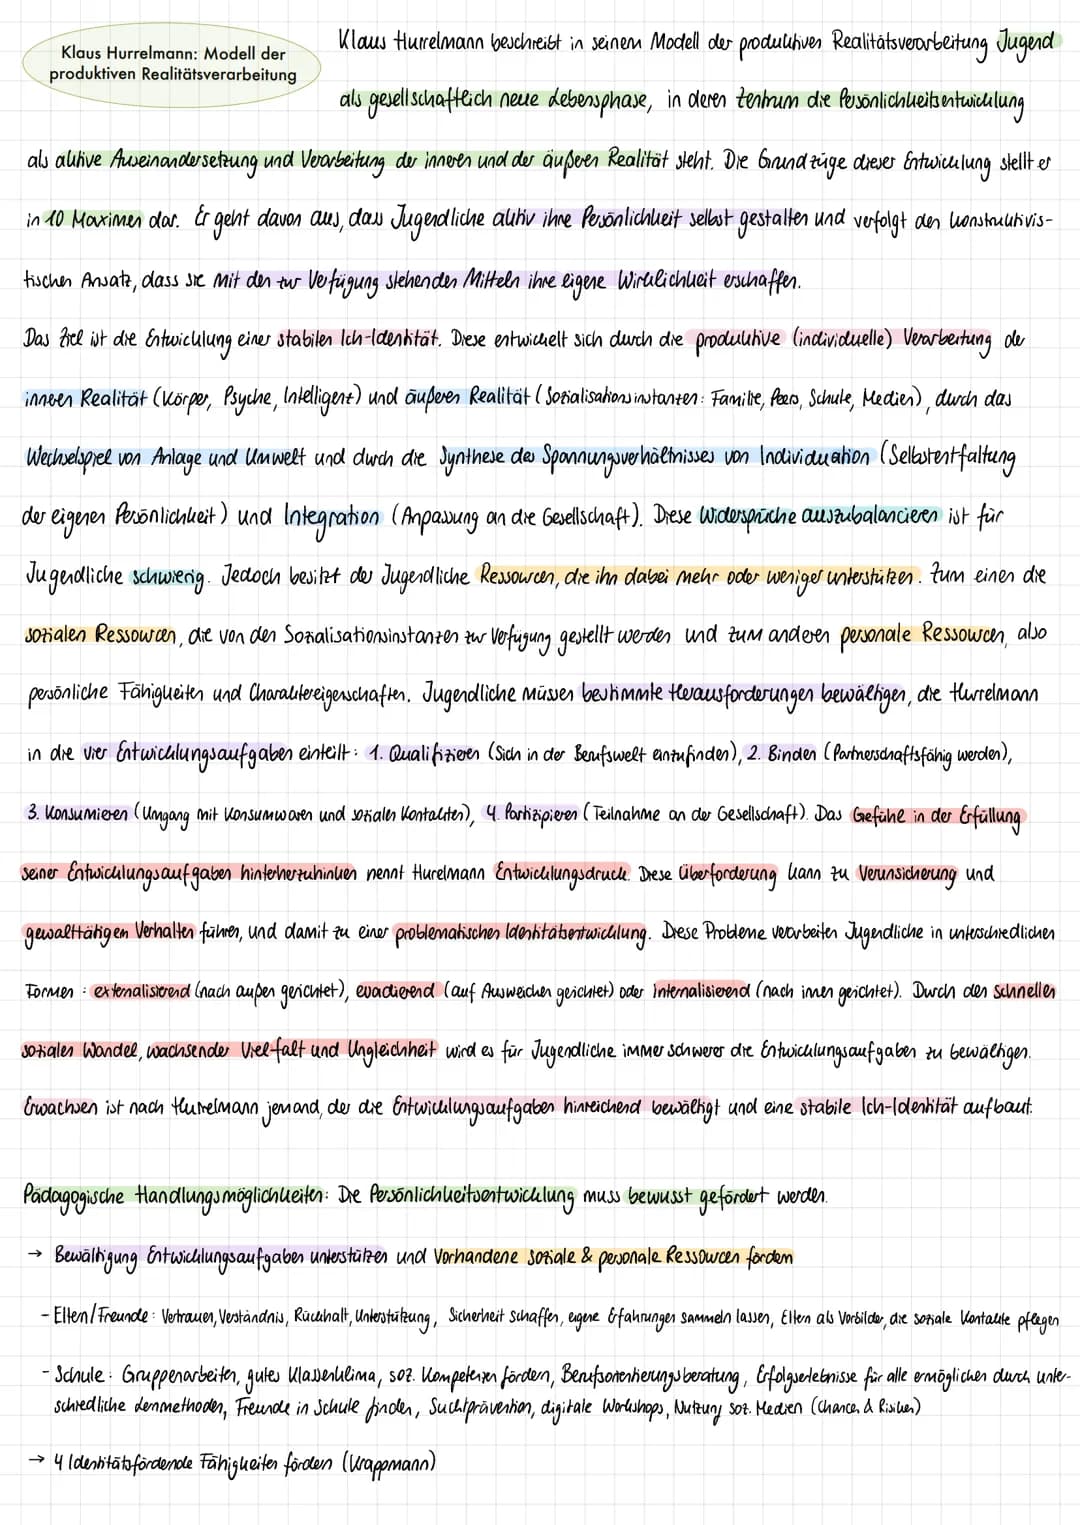 Klaus Hurrelmann: Modell der
produktiven Realitätsverarbeitung
Klaus Hurrelmann beschreibt in seinem Modell der produktiven Realitätsverarbeitung Jugend
als gesellschaftlich neue Lebensphase, in deren Zentrum die Persönlichkeitsentwicklung
als aktive Auseinandersetzung und Verarbeitung der inneren und der äußeren Realität steht. Die Grundzüge dieser Entwicklung stellt er
in 10 Maximen dar. Er geht davon aus, dass Jugendliche aktiv ihre Persönlichkeit selbst gestalten und verfolgt den konstruktivis-
tischen Ansatz, dass sie mit den zur Verfügung stehenden Mitteln ihre eigene Wirklichkeit erschaffen.
Das Ziel ist die Entwicklung einer stabilen Ich-Identität. Diese entwickelt sich durch die produktive (individuelle) Verarbeitung der
inneren Realität (Körper, Psyche, Intelligenz) und äußeren Realität (Sozialisationsinstanzen: Familie, Peers, Schule, Medien), durch das
Wechselspiel von Anlage und Umwelt und durch die Synthese des Spannungsverhältnisses von Individuation (Selbstentfaltung
der eigenen Persönlichkeit) und Integration (Anpassung an die Gesellschaft). Diese Widersprüche auszubalancieren ist für
Jugendliche schwierig. Jedoch besitzt der Jugendliche Ressourcen, die ihn dabei mehr oder weniger unterstützen. Zum einen die
sozialen Ressourcen, die von den Sozialisationsinstanzen zur Verfügung gestellt werden und zum anderen personale Ressourcen, also
persönliche Fähigkeiten und Charaktereigenschaften. Jugendliche müssen bestimmte Herausforderungen bewältigen, die Hurrelmann
in die vier Entwicklungsaufgaben einteilt: 1. Qualifizieren (Sich in der Berufswelt einzufinden), 2. Binden (Partnerschaftsfähig werden),
3. Konsumieren (Umgang mit Konsumwaren und sozialen Kontakten), 4. Partizipieren (Teilnahme an der Gesellschaft). Das Gefühl in der Erfüllung
seiner Entwicklungsaufgaben hinterherzuhinken nennt Hurelmann Entwicklungsdruck. Diese Überforderung kann zu Verunsicherung und
gewalttätigem Verhalten führen, und damit zu einer problematischen Identitätsentwicklung. Diese Probleme verarbeiten Jugendliche in unterschiedlichen
Formen: externalisierend (nach außen gerichtet), evadierend (auf Ausweichen gerichtet) oder internalisierend (nach innen gerichtet). Durch den schnellen
sozialen Wandel, wachsender Vielfalt und Ungleichheit wird es für Jugendliche immer schwerer die Entwicklungsaufgaben zu bewältigen.
Erwachsen ist nach Hurrelmann jemand, der die Entwicklungsaufgaben hinreichend bewältigt und eine stabile Ich-Identität aufbaut.
Pädagogische Handlungsmöglichkeiten: Die Persönlichkeitsentwicklung muss bewusst gefördert werden.
→ Bewältigung Entwicklungsaufgaben unterstützen und Vorhandene soziale & personale Ressourcen fördern
- Eltern/Freunde: Vertrauen, Verständnis, Rückhalt, Unterstützung, Sicherheit schaffen, eigene Erfahrungen sammeln lassen, Eltern als Vorbilder, die soziale Kontakte pflegen
- Schule: Gruppenarbeiten, gutes Klassenklima, soz. Kompetenzen fördern, Berufsorientierungsberatung, Erfolgserlebnisse für alle ermöglichen durch unter-
schiedliche Lernmethoden, Freunde in Schule finden, Suchtprävention, digitale Workshops, Nutzung soz. Medien (Chancen & Risiken)
→ 4 Identitätsfördende Fähigkeiten fördern (Krappmann)